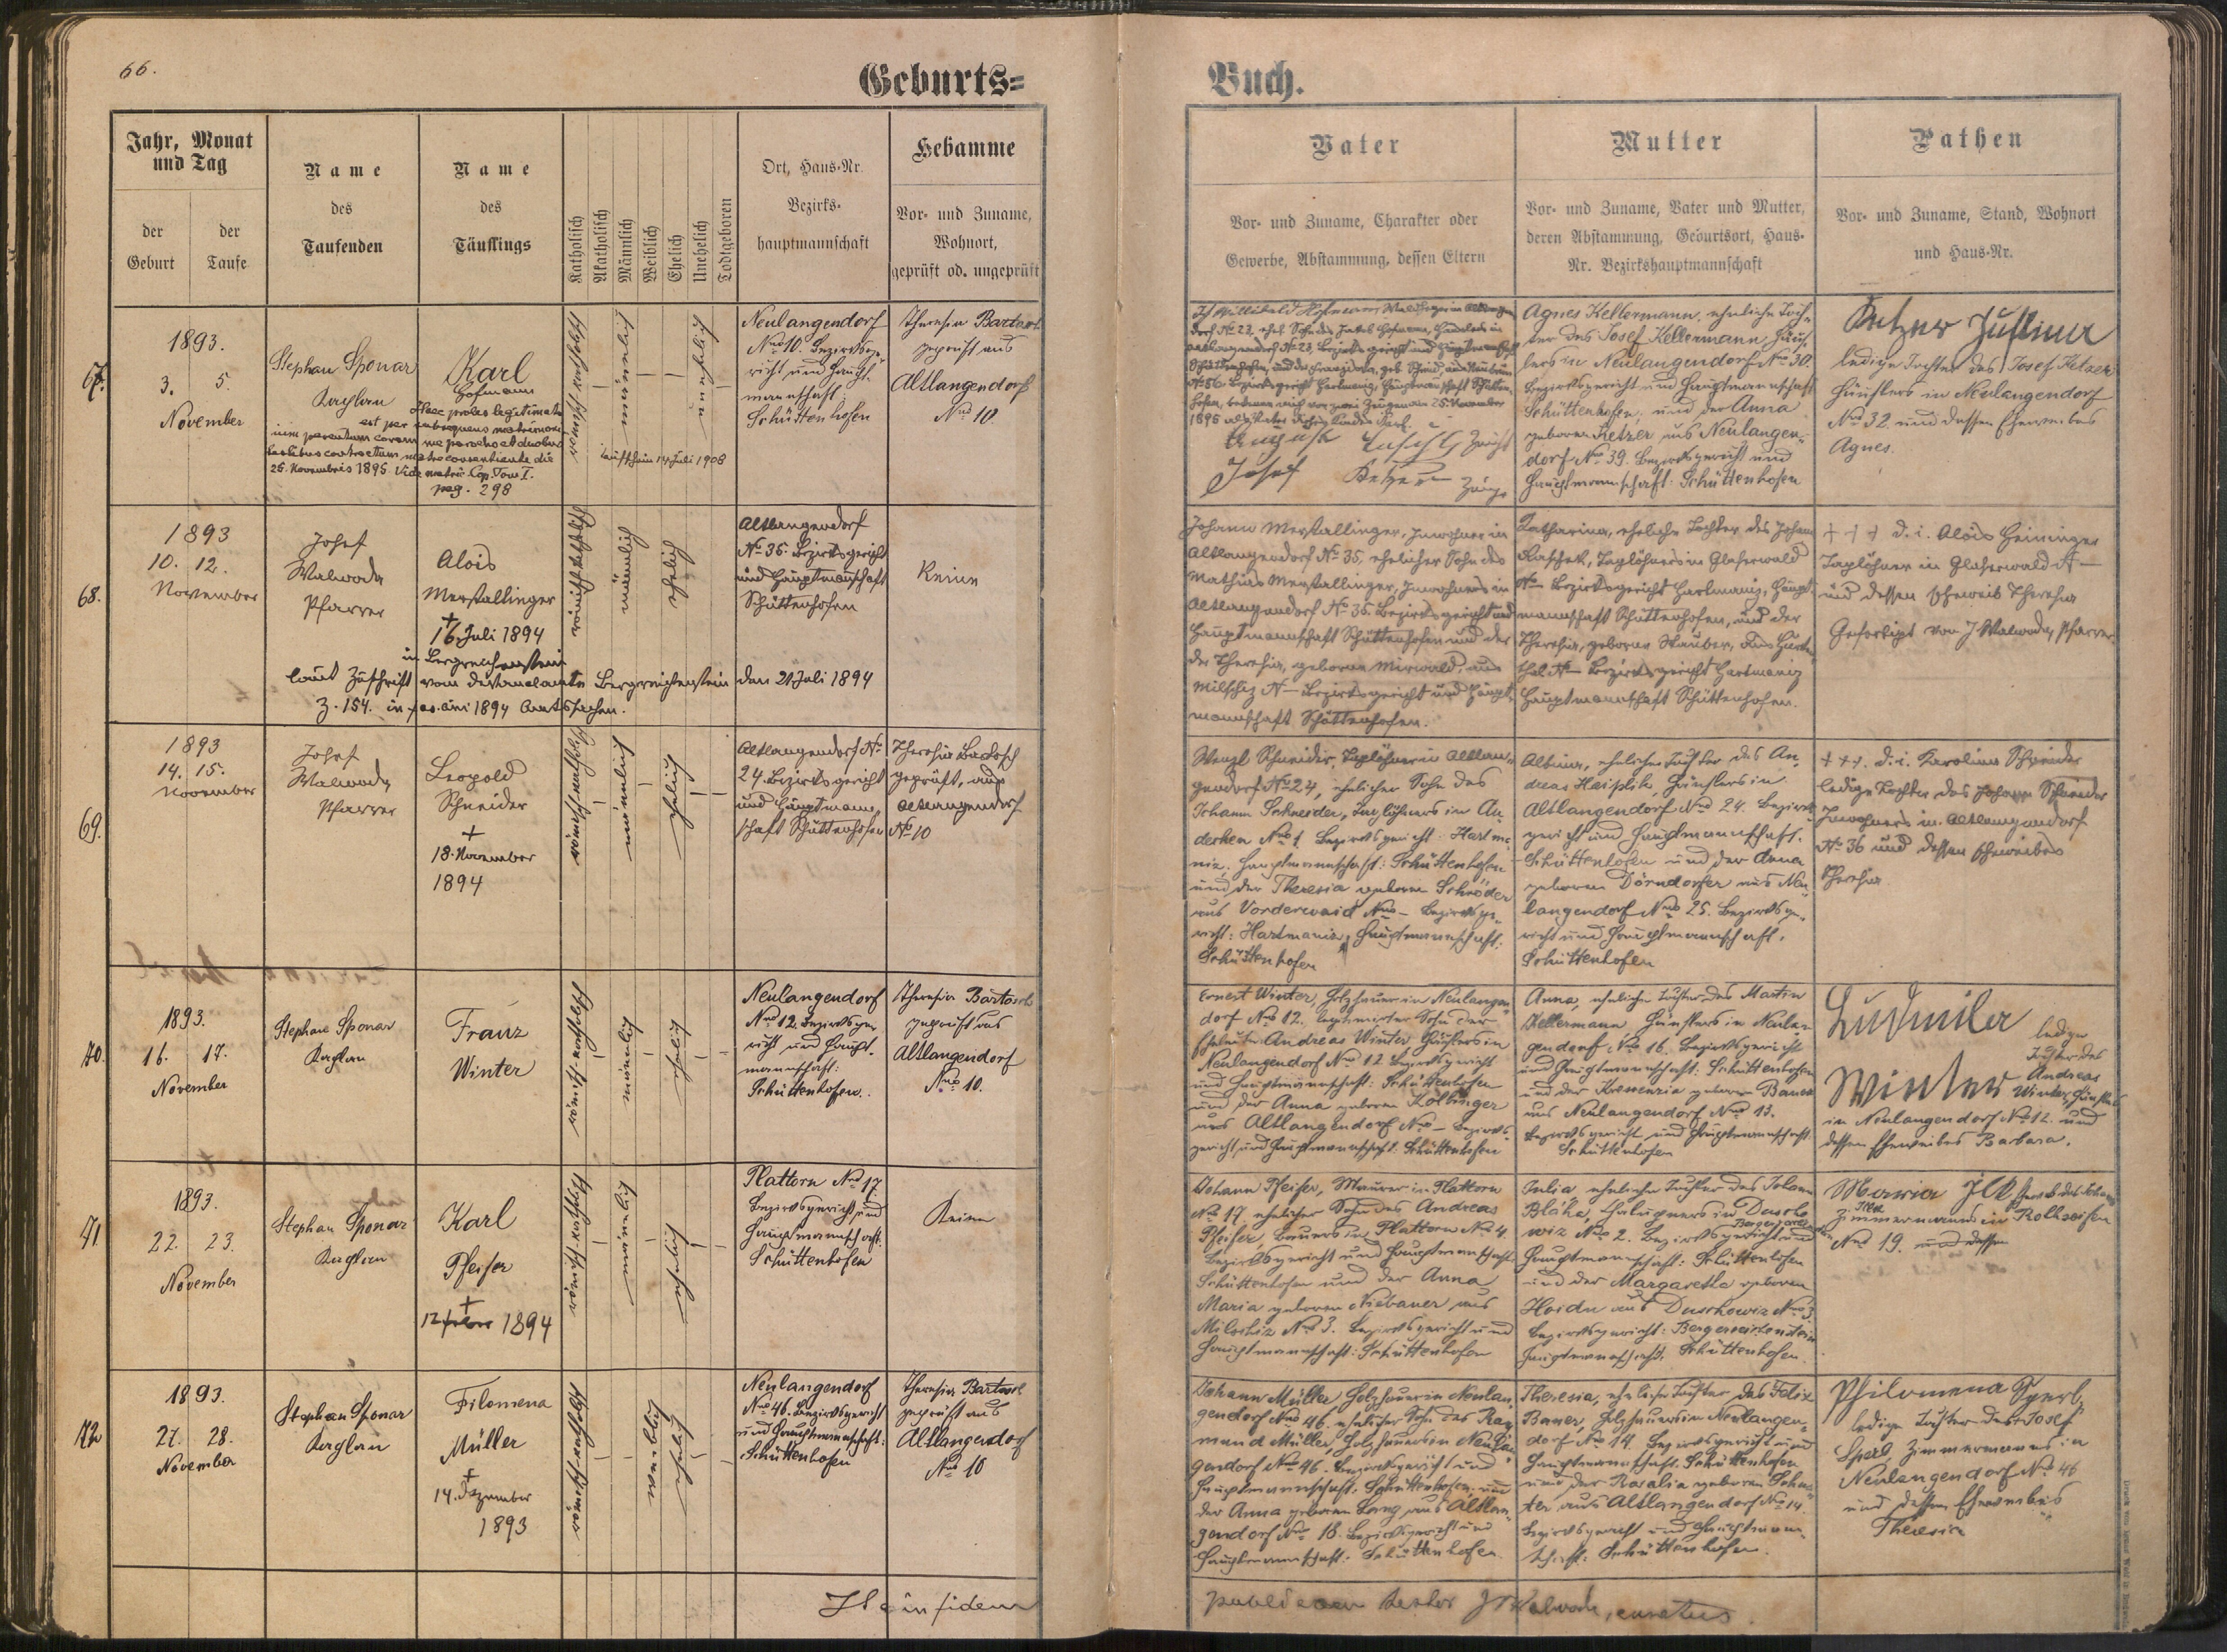 66.
Geburts=
Jahr, Monat
und Tag
der
Geburt
der
Taufe
Name
des
Taufenden
Name
des
Täuflings
Katholisch
Akatholisch
Männlich
Weiblich
Ehelich
Unehelich
Todtgeboren
Ort, Haus-Nr.
Bezirks-
hauptmannschaft
Hebamme
Vor- und Zuname,
Wohnort,
geprüft od. ungeprüft
67.
1893.
3. 5.
November
Stephan Sponar
Kaplan
Karl
Hofmann
Haec proles legitimata
est per subsequens matrimoni-
um parentum coram me parocho et duobus
testibus contractum matre consentiente die
25. Novembris 1895 Vide matric. Cop. Tom I.
pag. 298
römisch-katholisch
männlich
unehelich
Taufschein 14 Juli 1908
Neulangendorf
Nro 10. Bezirksge-
richt und Haupt-
mannschaft:
Schüttenhofen
Theresia Bartosch
geprüft aus
Altlangendorf
Nro 10.
68.
1893
10. 12.
November
Josef
Walwoda
Pfarrer
Alois
Merstallinger
+
16. Juli 1894
in Bergreichenstein
laut Zuschrift vom Dekanalamte Bergreichenstein den 21 Juli 1894
römisch-katholisch
männlich
ehelich
Altlangendorf
No 35. Bezirksgericht
und Hauptmannschaft
Schüttenhofen
Keine
69.
1893
14. 15.
November
Josef
Walwoda
Pfarrer
Leopold
Schneider
+
18. November
1894
römisch-katholisch
männlich
ehelich
Altlangendorf No
24. Bezirksgericht
und Hauptmann-
schaft Schüttenhofen
Theresia Bartosch
geprüft, aus
Altlangendorf
No 10
70.
1893.
16. 17.
November
Stephan Sponar
Kaplan
Franz
Winter
römisch-katholisch
männlich
ehelich
Neulangendorf
Nro 12. Bezirksge-
richt und Haupt-
mannschaft:
Schüttenhofen.
Theresia Bartosch
geprüft aus
Altlangendorf
Nro 10.
71
1893.
22. 23.
November
Stephan Sponar
Kaplan
Karl
Pfeifer
+
1894
römisch-katholisch
männlich
ehelich
Plattorn Nro 17.
Bezirksgericht und
Hauptmannschaft
Schüttenhofen
Keine
72
1893.
27. 28.
November
Stephan Sponar
Kaplan
Filomena
Müller
+
14. Dezember
1893
römisch-katholisch
weiblich
ehelich
Neulangendorf
Nro 46. Bezirksgericht
und Hauptmannschaft:
Schüttenhofen
Theresia Bartosch
geprüft aus
Altlangendorf
Nro 10
In fidem
Buch.
Vater
Vor- und Zuname, Charakter oder
Gewerbe, Abstammung, dessen Eltern
Mutter
Vor- und Zuname, Vater und Mutter,
deren Abstammung, Geburtsort, Haus-
Nr. Bezirkshauptmannschaft
Pathen
Vor- und Zuname, Stand, Wohnort
und Haus-Nr.
Ich Willibald Hofmann
Josef Ketzer Zeuge
Agnes Kellermann, eheliche Toch-
ter des Josef Kellermann, Häus-
lers in Neulangendorf Nro 30.
Bezirksgericht und Hauptmannschaft
Schüttenhofen, und der Anna
geboren Ketzer aus Neulangen-
dorf Nro 39. Bezirksgericht und
Hauptmannschaft: Schüttenhofen
Ketzer Justina
ledige Tochter des Josef Ketzer
Häuslers in Neulangendorf
Nro 32. und dessen Eheweibes
Agnes.
Johann Merstallinger, Inwohner in
Altlangendorf No 35, ehelicher Sohn des
Mathias Merstallinger, Inwohners in
Altlangendorf No 35. Bezirksgericht und
Hauptmannschaft Schüttenhofen und der
der Theresia, geborne Mirwald, aus
Milschiz No — Bezirksgericht und Haupt-
mannschaft Schüttenhofen.
Katharina, eheliche Tochter des Johann
Raschek, Taglöhners in Glaserwald
No — Bezirksgericht Hartmaniz, Haupt-
mannschaft Schüttenhofen, und der
Theresia, geborne Stauber, aus
No — Bezirksgericht Hartmaniz
Hauptmannschaft Schüttenhofen.
+++ d. i. Alois Heininger
Taglöhner in Glaserwald No —
und dessen Eheweib Theresia
Gefertigt von J Walwoda, Pfarrer
Wenzl Schneider, Taglöhner in Altlan-
gendorf No 24, ehelicher Sohn des
Johann Schneider, Taglöhners in
Nro 1. Bezirksgericht: Hartma-
niz, Hauptmannschaft: Schüttenhofen
und der Theresia geboren Schröder
aus Vorderwaid Nro — Bezirksge-
richt: Hartmaniz, Hauptmannschaft:
Schüttenhofen
eheliche Tochter des An-
dreas Häuslers in
Altlangendorf Nro 24. Bezirks-
gericht und Hauptmannschaft:
Schüttenhofen und der Anna
geboren Dörndorfer aus Neu-
langendorf Nro 25. Bezirksge-
richt und Hauptmannschaft.
Schüttenhofen
+++. d. i. Karolina Schneider
ledige Tochter des Johann Schneider
Inwohners in Altlangendorf
No 36 und dessen Eheweibes
Theresia.
Ernest Winter, Holzhauer in Neulangen-
dorf Nro 12. legitimirter Sohn der
Eheleute Andreas Winter, Häuslers in
Neulangendorf Nro 12 Bezirksgericht
und Hauptmannschaft: Schüttenhofen
und der Anna geboren Kolbinger
aus Altlangendorf Nro — Bezirks-
gericht und Hauptmannschaft: Schüttenhofen
Anna, eheliche Tochter des Martin
Kellermann, Häuslers in Neulan-
gendorf Nro 16. Bezirksgericht
und Hauptmannschaft: Schüttenhofen
und der Kreszenzia geboren Bauer
aus Neulangendorf Nro 13.
Bezirksgericht und Hauptmannschaft:
Schüttenhofen
Ludmila ledige
Tochter des
Winter Andreas
Winter, Häuslers
in Neulangendorf No 12. und
dessen Eheweibes Barbara.
Johann Pfeifer, Maurer in Plattorn
No 17, ehelicher Sohn des Andreas
Pfeifer, Bauers in Plattorn No 4.
Bezirksgericht und Hauptmannschaft
Schüttenhofen und der Anna
Maria geboren Niebauer aus
Milschiz Nro 3. Bezirksgericht und
Hauptmannschaft: Schüttenhofen
Julia, eheliche Tochter des Johann
Blaha, in Duscho-
wiz Nro 2. Bezirksgericht und
Hauptmannschaft: Schüttenhofen
und der Margaretha geboren
Haidn aus Duschowiz Nro 3.
Bezirksgericht: Bergreichenstein
Hauptmannschaft: Schüttenhofen.
Maria Ilk
Zimmermanns in Rothseifen
Nro 19. und dessen
Johann Müller Holzhauer in Neulan-
gendorf Nro 46. ehelicher Sohn des Ray-
mund Müller, Holzhauers in Neulan-
gendorf Nro 46. Bezirksgericht und
Hauptmannschaft. Schüttenhofen und
der Anna geboren Lang aus Altlan-
gendorf Nro 18. Bezirksgericht und
Hauptmannschaft: Schüttenhofen.
Theresia, eheliche Tochter des Felix
Bauer, Holzhauers in Neulangen-
dorf No 14. Bezirksgericht und
Hauptmannschaft. Schüttenhofen
und der Rosalia geboren Schu-
ster aus Altlangendorf No 14.
Bezirksgericht und Hauptmann-
schaft: Schüttenhofen.
Philomena Sperl,
ledige Tochter des Josef
Sperl Zimmermanns in
Neulangendorf No 46
und dessen Eheweibes
Theresia
J Walwoda, curatus.